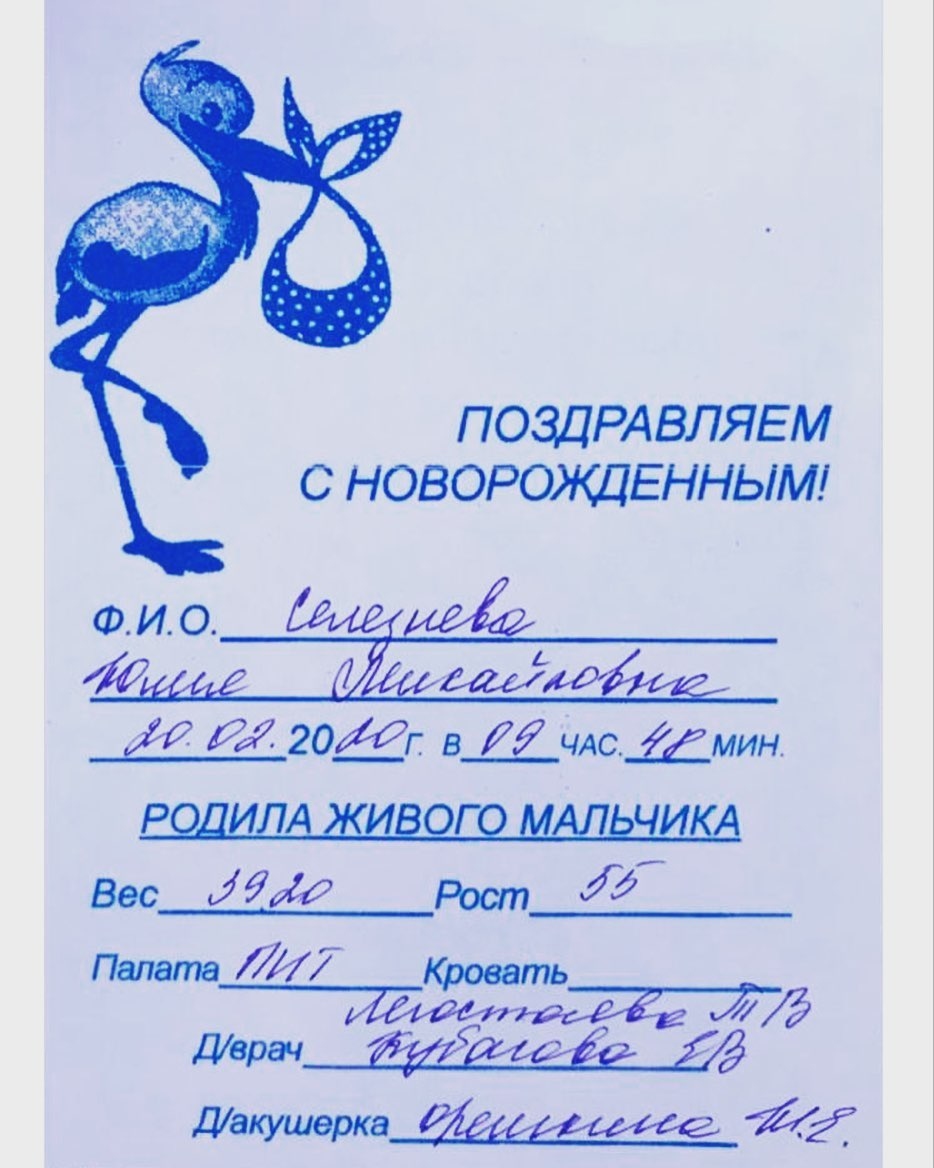 ПОЗДРАВЛЯЕМ
С НОВОРОЖДЕННЫМ!
Ф.И.О. Селезнева
Юлие Михайловна
20.02.2020г. в 09 час. 48 мин.
РОДИЛА ЖИВОГО МАЛЬЧИКА
Вес 3920 Рост 55
Палата ПИТ Кровать
ТВ
Д/врач ЕВ
Д/акушерка Орешкина